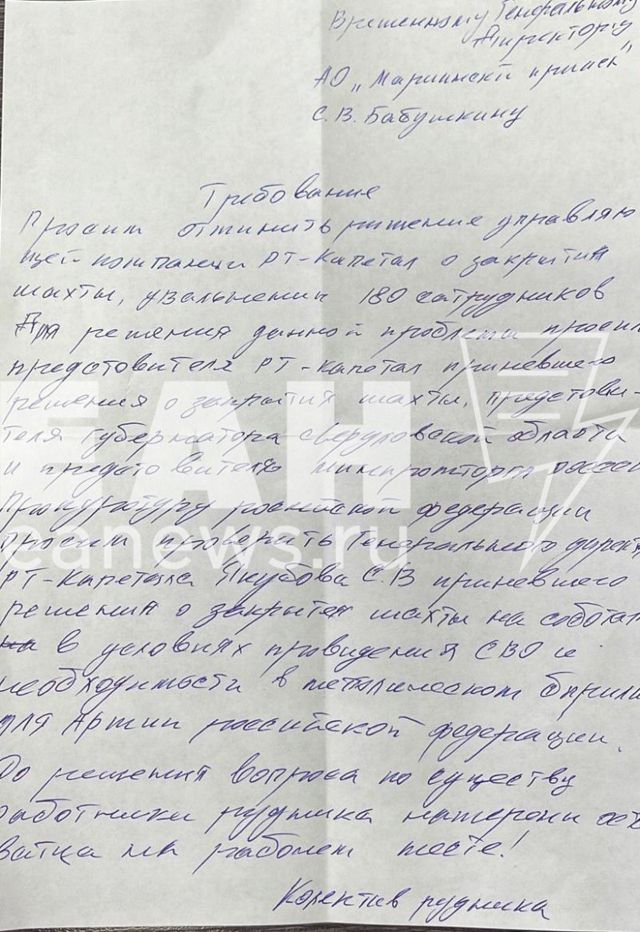 Временному Генеральному
Директору
АО „Мариинский прииск"
С.В. Бабушкину
Требование
Просим отминить ришение управляю
щей компанеи РТ-Капетал о закрытии
шахты, увальнении 180 сатрудников
Для решения данной проблемы просим
предстовителя РТ-капетал приневшего
решения о закрытия шахты, предстови-
теля губернатора свердловской области
и предстовителя минпромторга россии
Прокуротуру росийской федерации
просим проверить Генерального дирек
РТ-Капетала Якубова С.В приневшего
решения о закрытея шахты на соботаж
в условиях провидения СВО и
необходимости в металическом берили
для Армии российской федерации.
До решения вопроса по существу
работники рудника намерены ост
ватца на рабочем месте!
Колектив рудника
ЕАН
eanews.ru